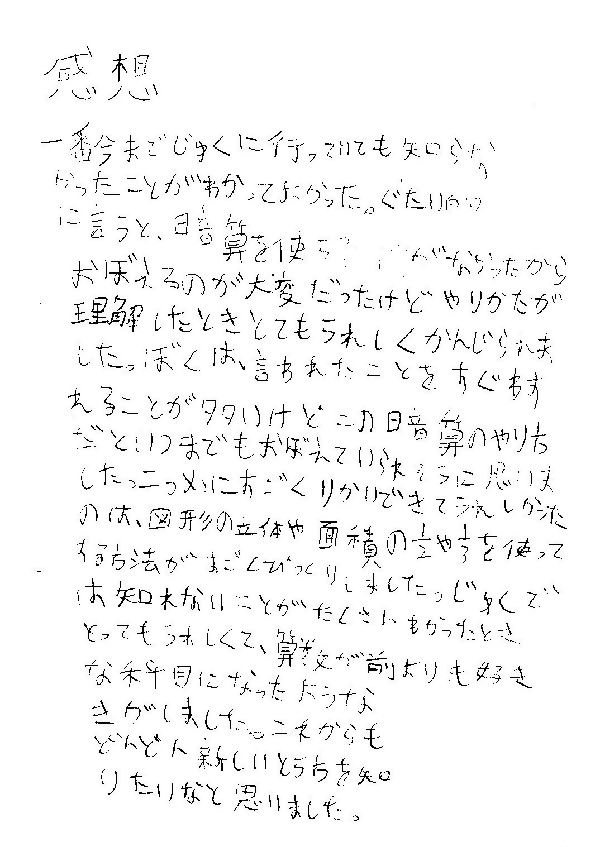 感想
一番今までじゅくに行っていても知らな
かったことがわかってよかった。ぐたい的
に言うと、暗算を使う がなかったから
おぼえるのが大変だったけどやりかたが
理解したときとてもうれしくかんじられま
した。ぼくは、言われたことをすぐわす
れることが多いけどこの暗算のやり方
だといつまでもおぼえていられそうに思いま
した。二つめにすごくりかいできてうれしかった
のは、図形の立体や面積の を使って
する方法がすごくびっくりしました。じゅくで
は知れないことがたくさんわかったとき
とってもうれしくて、算数が前よりも好き
な科目になったような
きがしました。これからも
どんどん新しいとき方を知
りたいなと思いました。